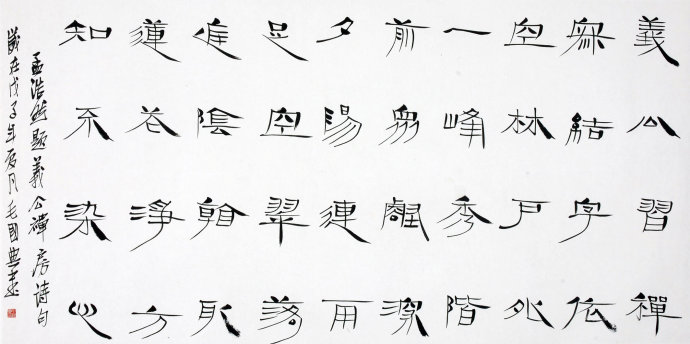 義公習禪
寂結宇依
空林戶外
一峰秀階
前眾壑深
夕陽連雨
足空翠落
庭陰看取
蓮花淨方
知不染心
孟浩然題義公禪房诗句
歲在戊子年夏月毛國典書